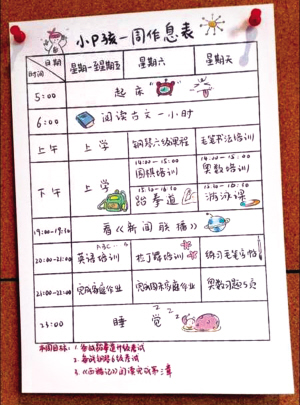 小P孩一周作息表
日期
时间
星期一至星期五 星期六 星期天
5:00 起床
6:00 阅读古文一小时
上午 上学 钢琴六级课程 毛笔书法培训
下午 上学
14:00-15:00 围棋培训
15:10-16:10 跆拳道
14:00-15:00 奥数培训
15:10-16:10 游泳课
19:00-19:30 看《新闻联播》
ABC...
20:00-21:00 英语培训 拉丁舞培训 练习毛笔字帖
21:00-22:00 完成家庭作业 完成周末家庭作业 奥数习题5页
23:00 睡觉 z z z
本周目标: 1. 备战跆拳道升级考试
2. 备战钢琴6级考试
3.《西游记》阅读完成第三章